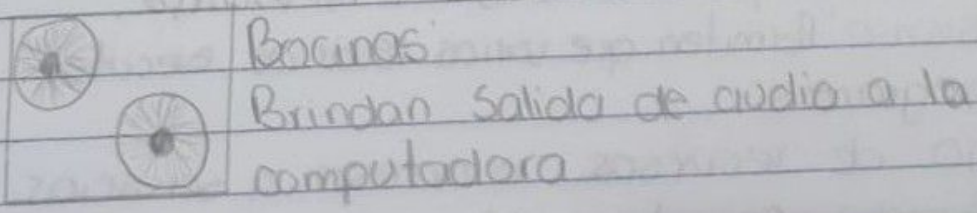 Bocinas
Brindan Salida de audio a la
computadora